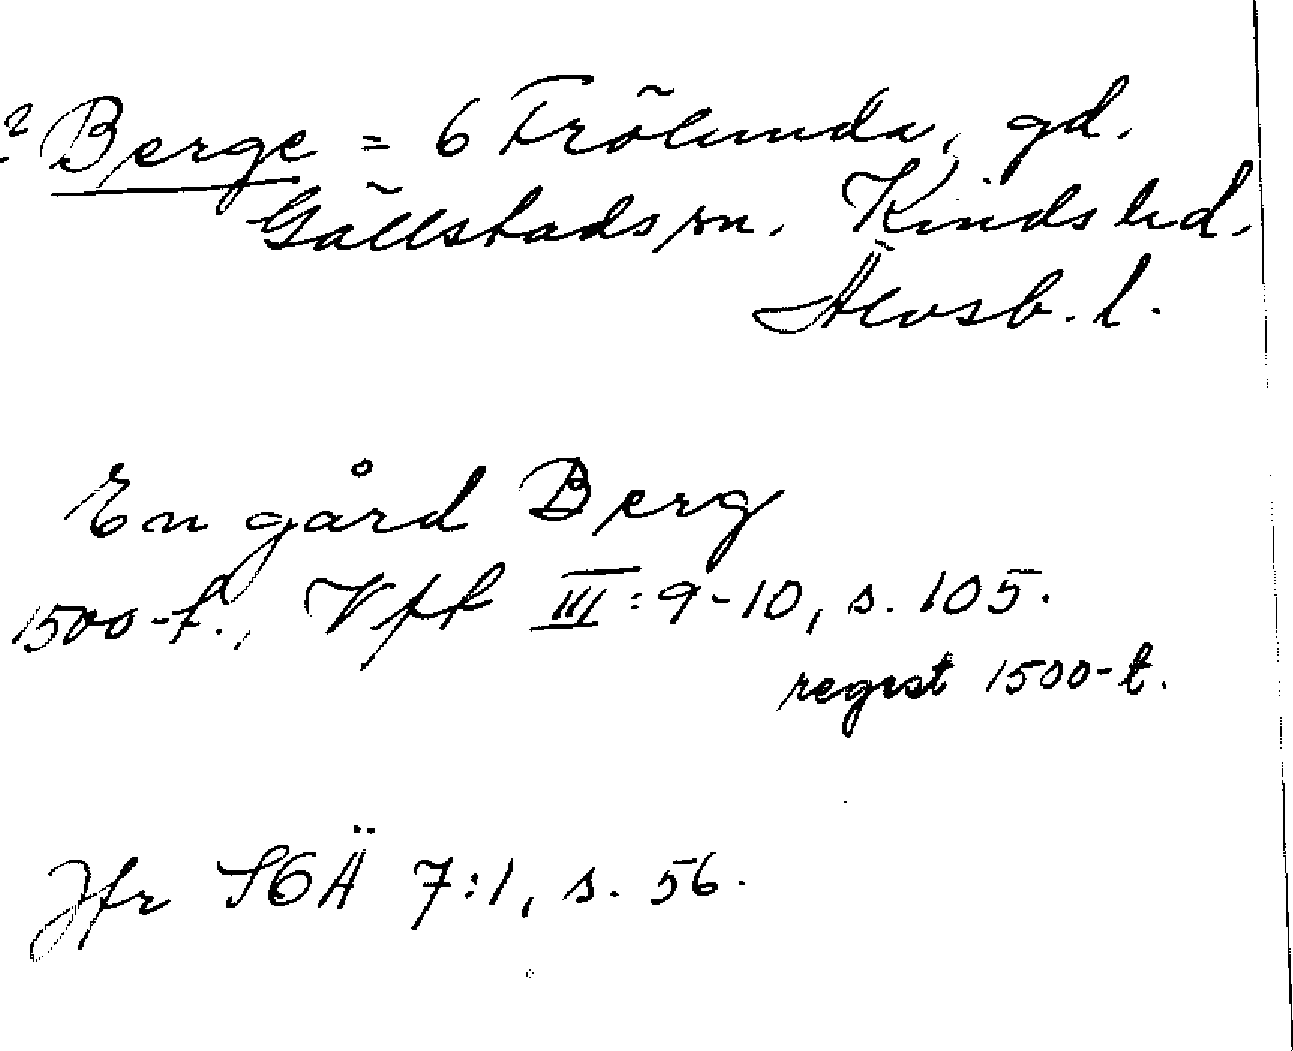 ? Berge = 6 Frölunda, gd.
Gällstads sn. Kinds hd.
Älvsb. l.
En gård Berg
1500-t., Vff III:9-10, s. 105.
regest 1500-t.
Jfr SOÄ 7:1, s. 56.